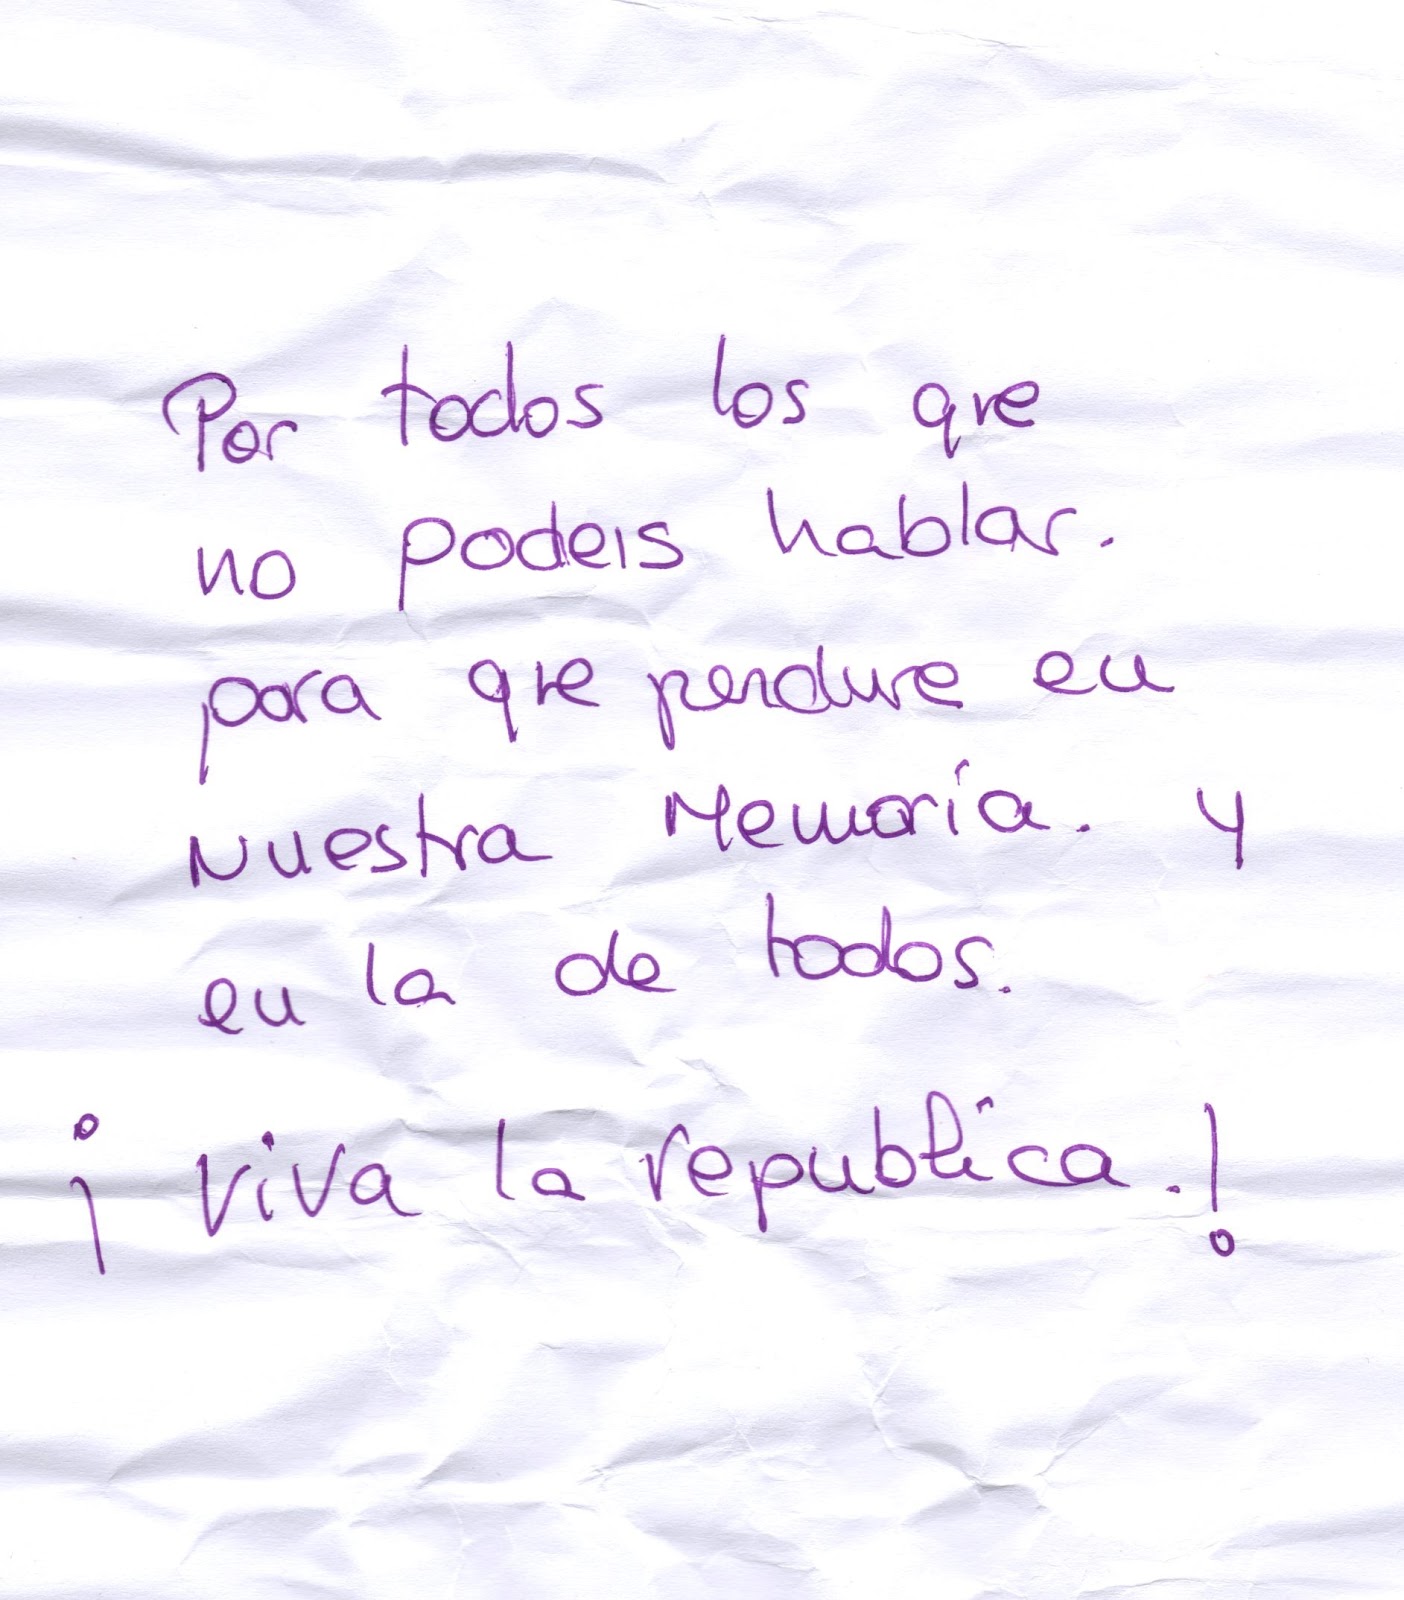 Por todos los que
no podeis hablar.
para que perdure en
Nuestra Memoria. y
en la de todos.
¡ viva la republica. !